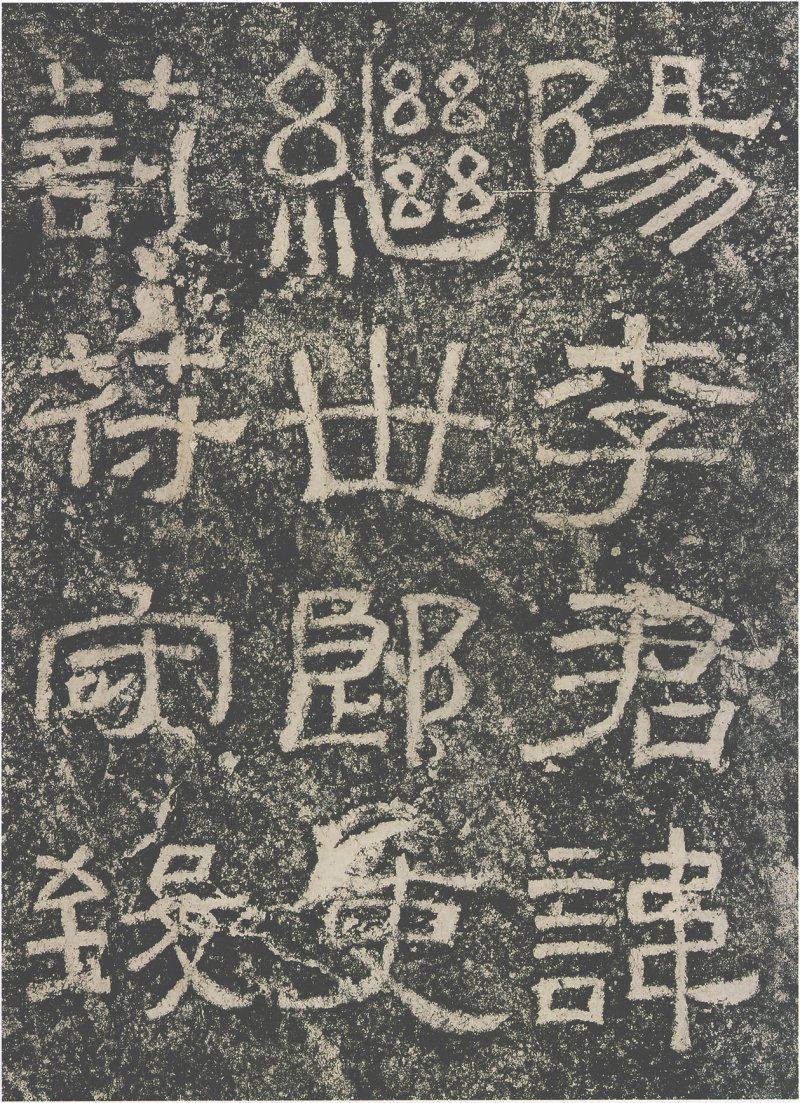 陽李君諱
繼世郎吏
剖符守致